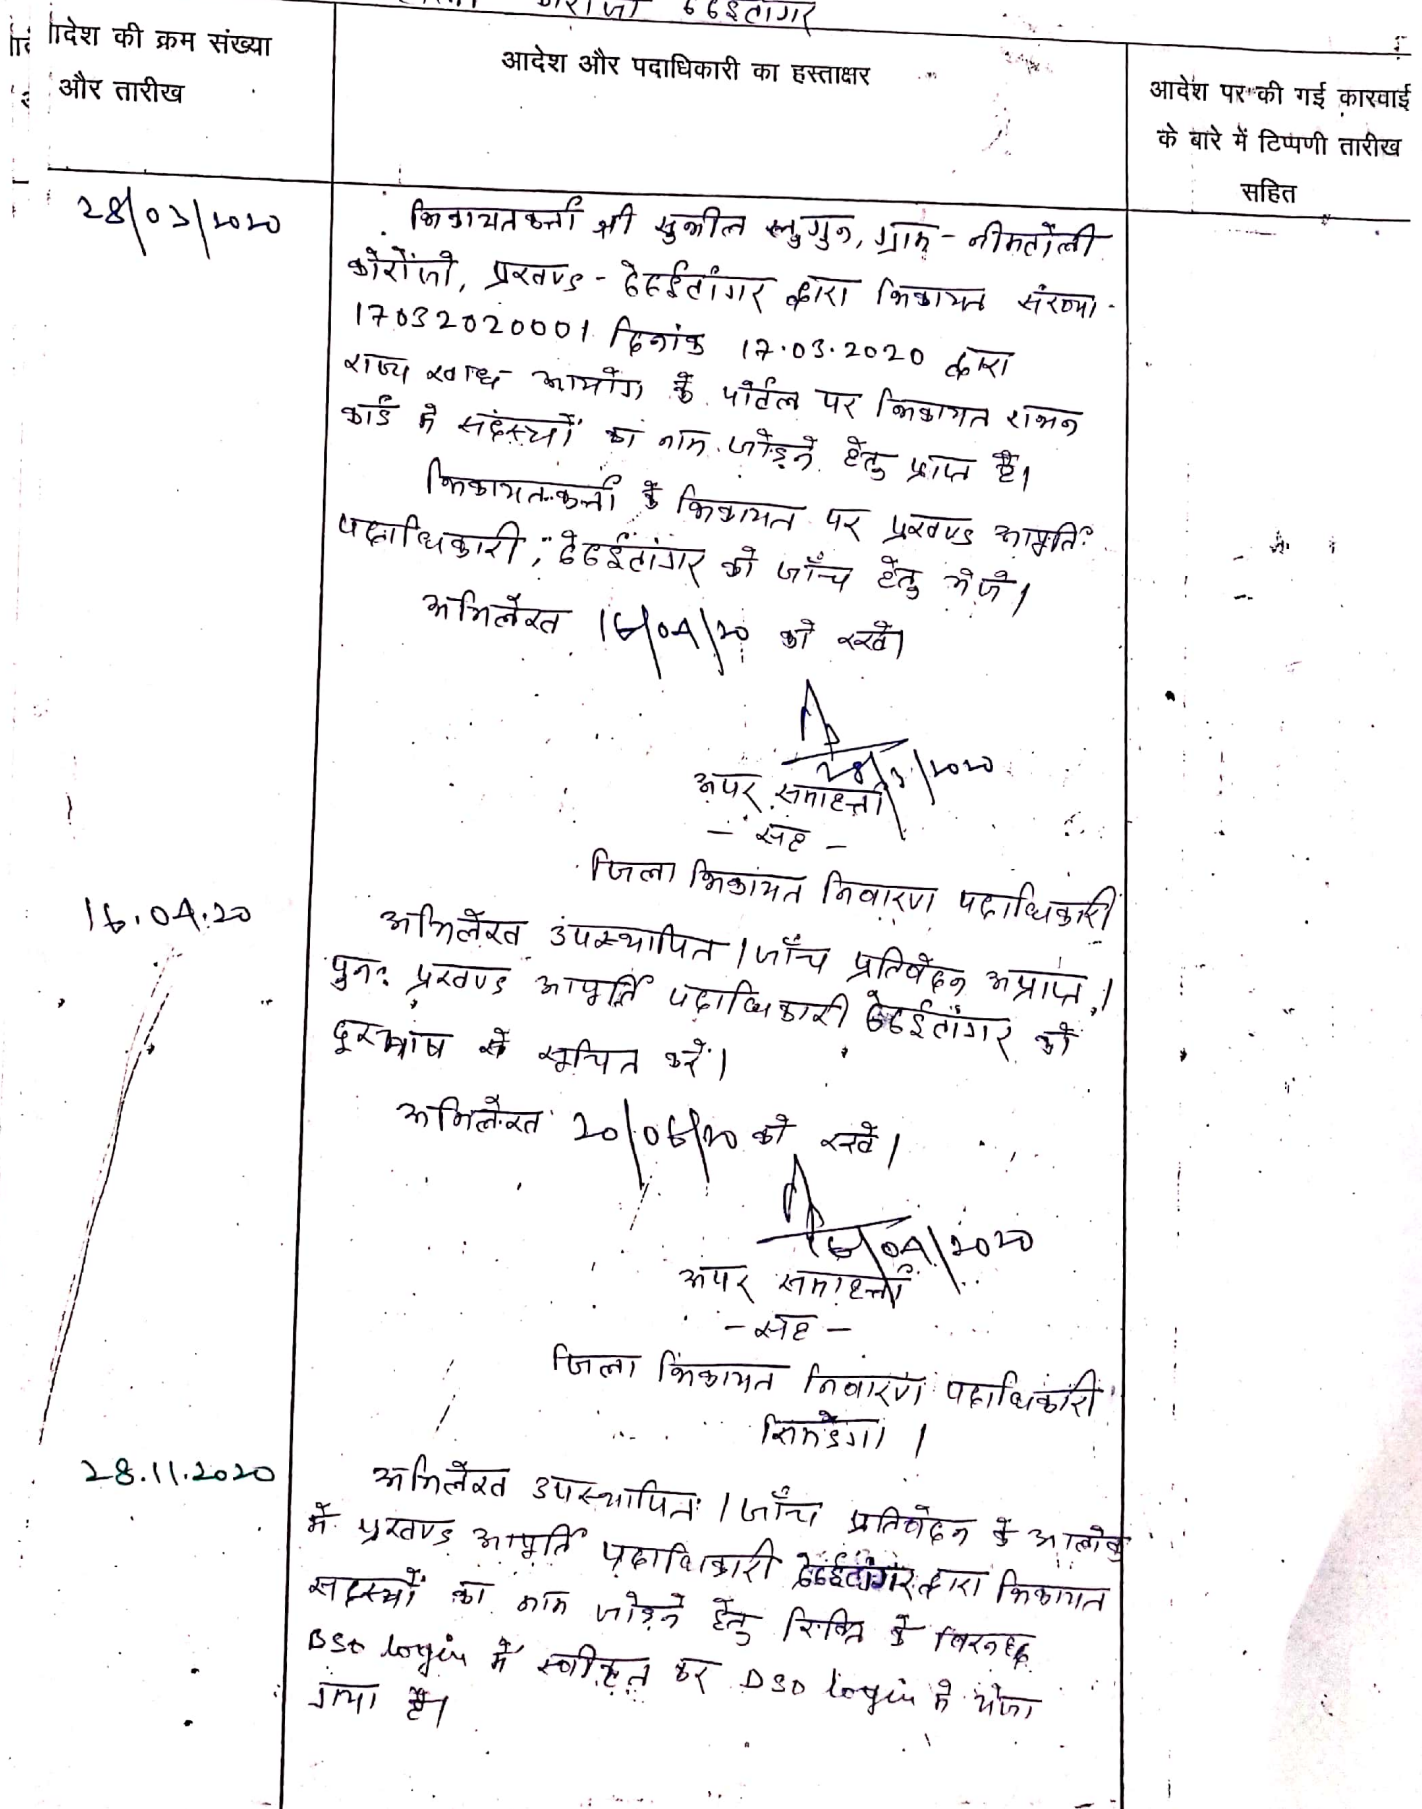 ठेठईटांगर
ादेश की क्रम संख्या
और तारीख
आदेश और पदाधिकारी का हस्ताक्षर
आदेश पर की गई कारवाई
के बारे में टिप्पणी तारीख
सहित
28/03/2020
शिकायतकर्त्ता श्री सुशील लुगुन, ग्राम - नीमटोली
कोरोंजो, प्रखण्ड - ठेठईटांगर द्वारा शिकायत संख्या -
17032020001 दिनांक 17.03.2020 द्वारा
राज्य खाद्य आयोग के पोर्टल पर शिकायत राशन
कार्ड में सदस्यों का नाम जोड़ने हेतु प्राप्त है।
शिकायतकर्त्ता के शिकायत पर प्रखण्ड आपूर्ति
पदाधिकारी, ठेठईटांगर को जाँच हेतु भेजे।
अभिलेख 16/04/20 को रखें।
28/3/2020
अपर समाहर्त्ता
- सह -
जिला शिकायत निवारण पदाधिकारी
16.04.20
अभिलेख उपस्थापित। जाँच प्रतिवेदन अप्राप्त।
पुनः प्रखण्ड आपूर्ति पदाधिकारी ठेठईटाँगर को
दूरभाष से सूचित करें।
अभिलेख 20/06/20 को रखें।
16/04/2020
अपर समाहर्त्ता
- सह -
जिला शिकायत निवारण पदाधिकारी
सिमडेगा।
28.11.2020
अभिलेख उपस्थापित। जाँच प्रतिवेदन के आलोक
में प्रखण्ड आपूर्ति पदाधिकारी ठेठईटांगर द्वारा शिकायत
सदस्यों का नाम जोड़ने हेतु रिक्ति के विरूद्ध
BSO login में स्वीकृत कर DSO login में भेजा
गया है।